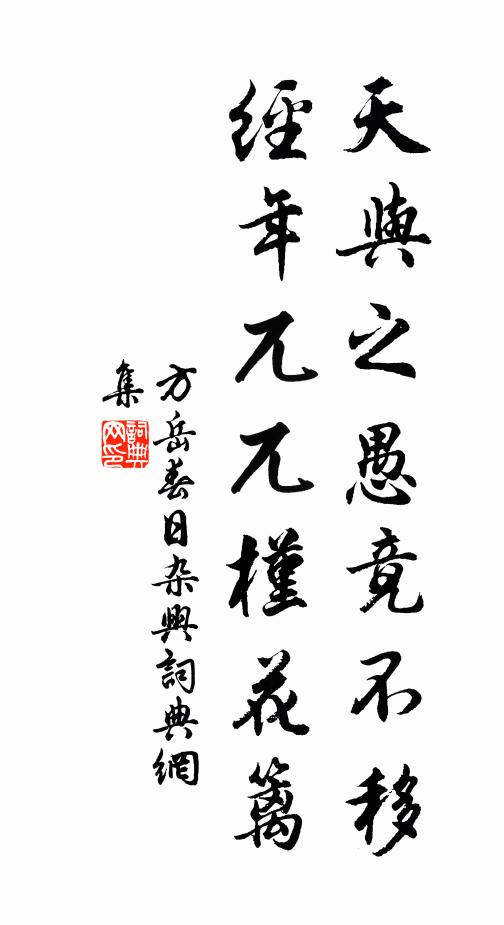 天與之愚竟不移
經年兀兀槿花籬
方岳春日杂興詞典網
集
詞典
网印